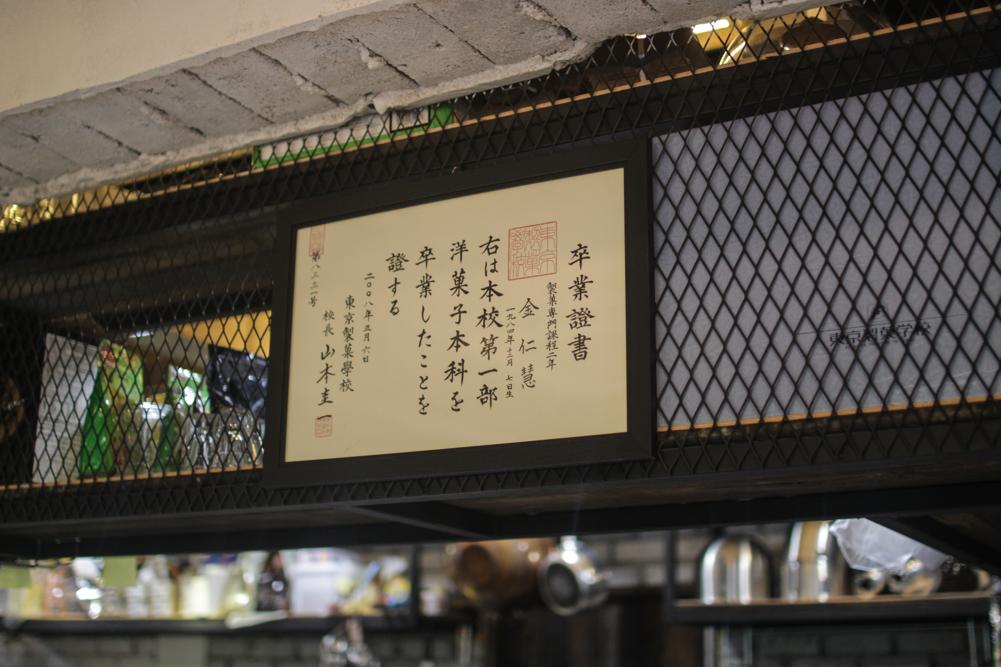 卒業證書
製菓専門課程二年
金仁慧
一九八四年十二月七日生
右は本校第一部
洋菓子本科を
卒業したことを
證する
二〇〇八年三月六日
東京製菓學校
校長 山本圭
第八三三一号
東京製菓学校